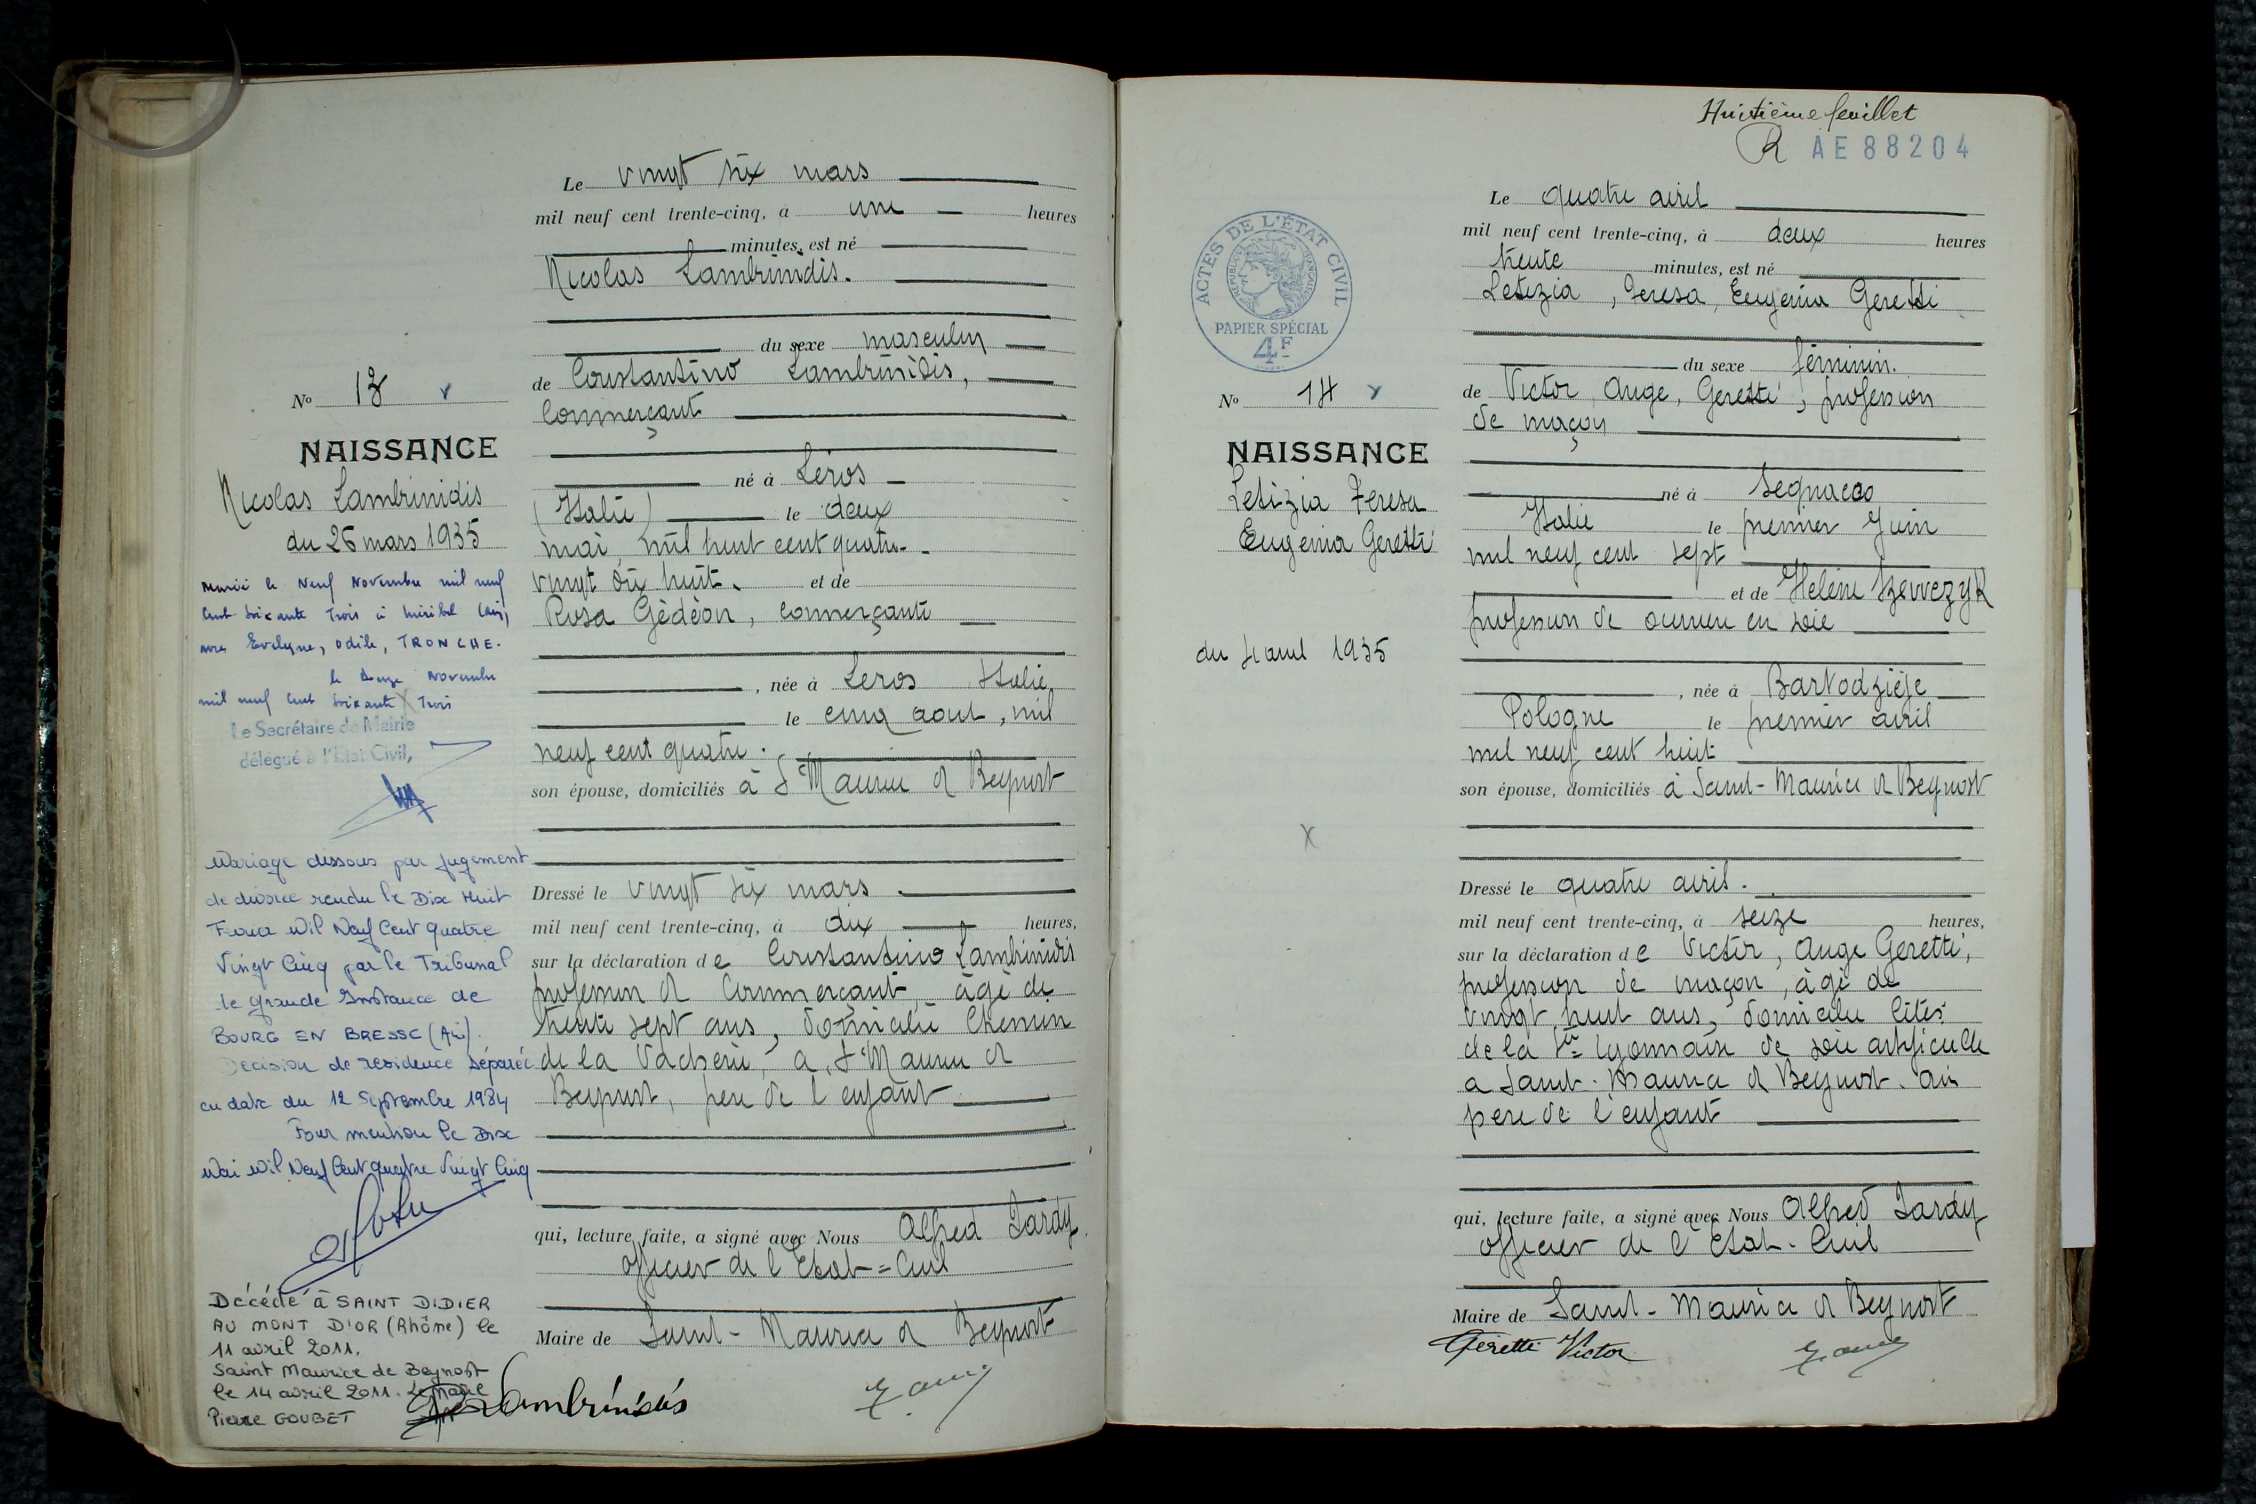 Le vingt six mars
mil neuf cent trente-cinq, à une heures
minutes, est né
Nicolas Lambrinidis.
du sexe masculin
de Constantino Lambrinidis,
Commerçant
né à Léros
(Italie) le deux
mai, mil huit cent quatre-
vingt dix huit. et de
Rosa Gédéon, commerçante
, née à Leros Italie
le cinq aout, mil
neuf cent quatre.
son épouse, domiciliés à St Maurice de Beynost
Dressé le vingt six mars
mil neuf cent trente-cinq, à dix heures,
sur la déclaration de Constantino Lambrinidis
profession de Commerçant, âgé de
trente sept ans, domicilié Chemin
de la Vacherie, a St Maurice de
Beynost, père de l'enfant
qui, lecture faite, a signé avec Nous Alfred Tardy
officier de l'Etat=Civil
Maire de Saint-Maurice de Beynost
Lambrinidis
No 13
NAISSANCE
Nicolas Lambrinidis
du 26 mars 1935
Marié le Neuf Novembre mil neuf
cent soixante Trois à Miribel (Ain)
avec Evelyne, Odile, TRONCHE.
le Douze Novembre
mil neuf cent soixante Trois
Le Secrétaire de Mairie
délégué à l'Etat Civil,
Mariage dissous par jugement
de divorce rendu le Dix Huit
Fevrier Mil Neuf Cent quatre
Vingt Cinq par le Tribunal
de grande Instance de
BOURG EN BRESSE (Ain).
Decision de residence séparée
en date du 12 Septembre 1984
Pour mention le Dix
Mai Mil Neuf Cent quatre Vingt Cinq
Décédé à SAINT DIDIER
AU MONT D'OR (Rhône) le
11 avril 2011.
Saint Maurice de Beynost
le 14 avril 2011. Le Maire
Pierre GOUBET
Huitième feuillet
R AE 88204
ACTES DE L'ÉTAT CIVIL
RÉPUBLIQUE FRANÇAISE
PAPIER SPÉCIAL
4F
Le quatre avril
mil neuf cent trente-cinq, à deux heures
trente minutes, est né
Letizia, Teresa, Eugenia Geretti
du sexe féminin.
de Victor, Ange, Geretti, profession
de maçon
né à Segnacco
Italie le premier Juin
mil neuf cent sept
et de Hélène Szewezyk
profession de ouvrière en soie
, née à Bartodzieje
Pologne le premier avril
mil neuf cent huit
son épouse, domiciliés à Saint-Maurice de Beynost
Dressé le quatre avril.
mil neuf cent trente-cinq, à seize heures,
sur la déclaration de Victor, Ange Geretti,
profession de maçon, âgé de
vingt huit ans, domicilié Cités
de la Sté Lyonnaise de soie artificielle
a Saint-Maurice de Beynost. Ain
père de l'enfant
qui, lecture faite, a signé avec Nous Alfred Tardy
officier de l'Etat-Civil
Maire de Saint-Maurice de Beynost
Geretti Victor
No 14
NAISSANCE
Letizia Teresa
Eugenia Geretti
du 4 avril 1935